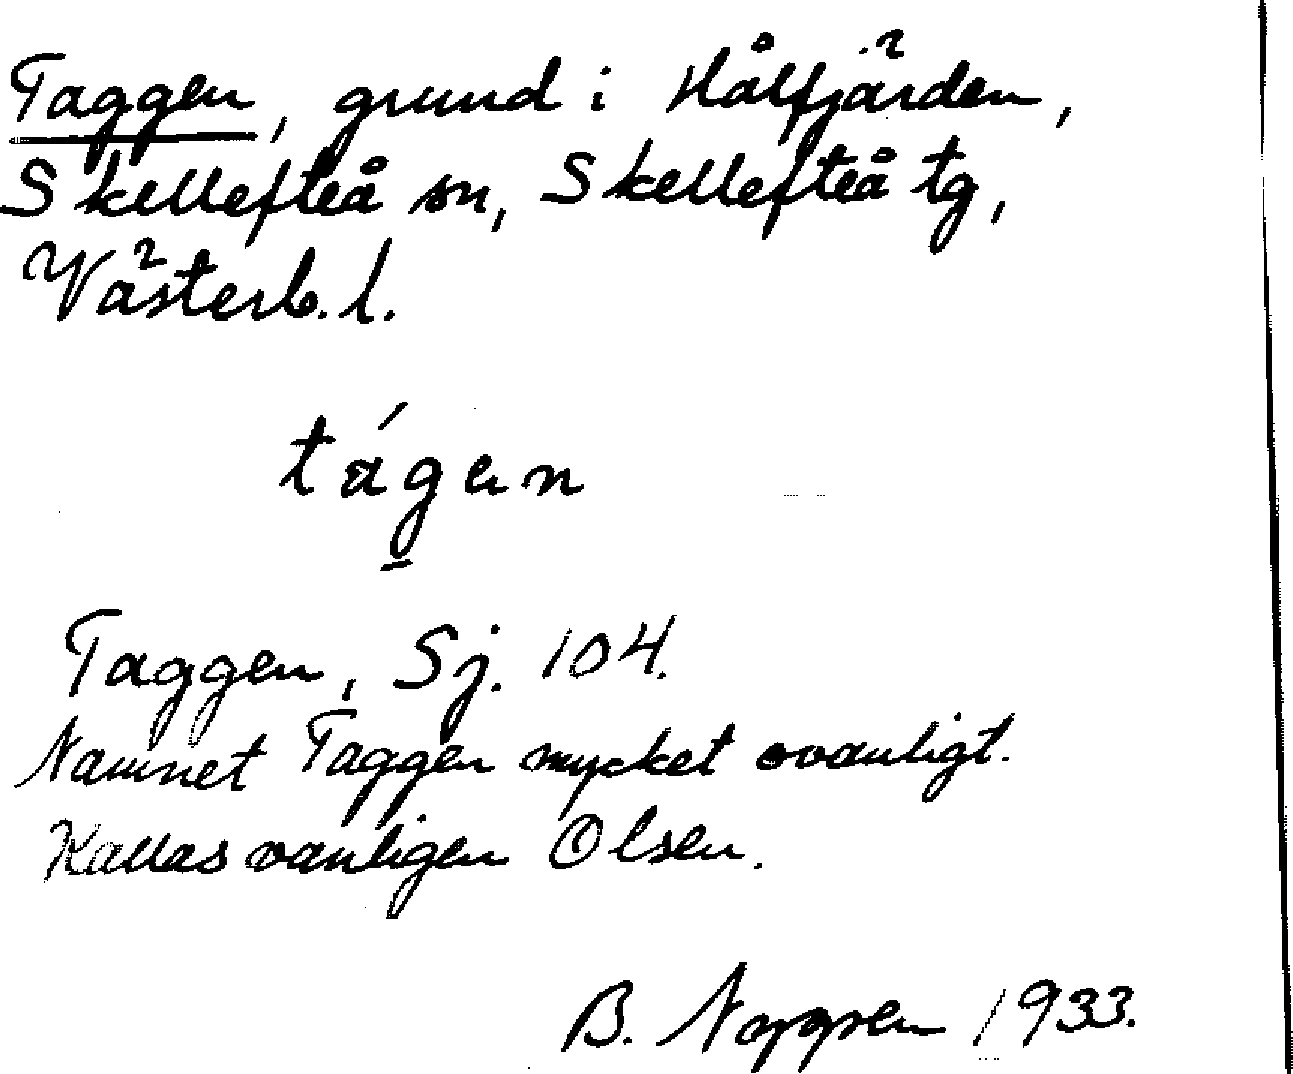 Taggen, grund i Hålfjärden,
Skellefteå sn, Skellefteå tg,
Västerb. l.
tág̲en
Taggen, Sj. 104.
Namnet Taggen mycket ovanligt.
Kallas vanligen Olsen.
B. 1933.